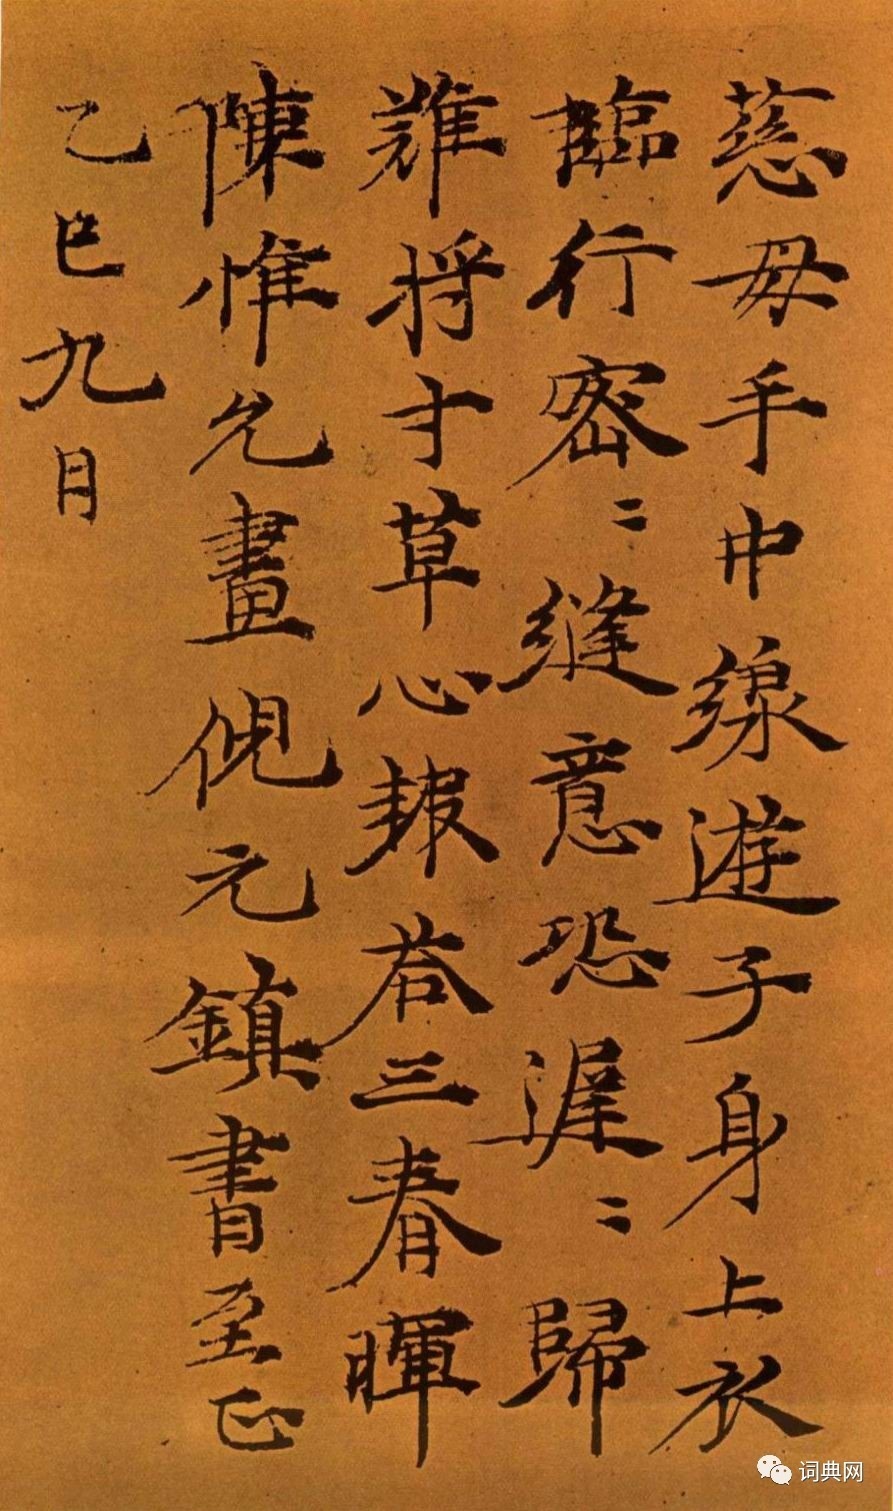 慈母手中線遊子身上衣
臨行密〻縫意恐遲〻歸
難將寸草心報荅三春暉
陳惟允畫倪元鎮書至正
乙巳九月
词典网